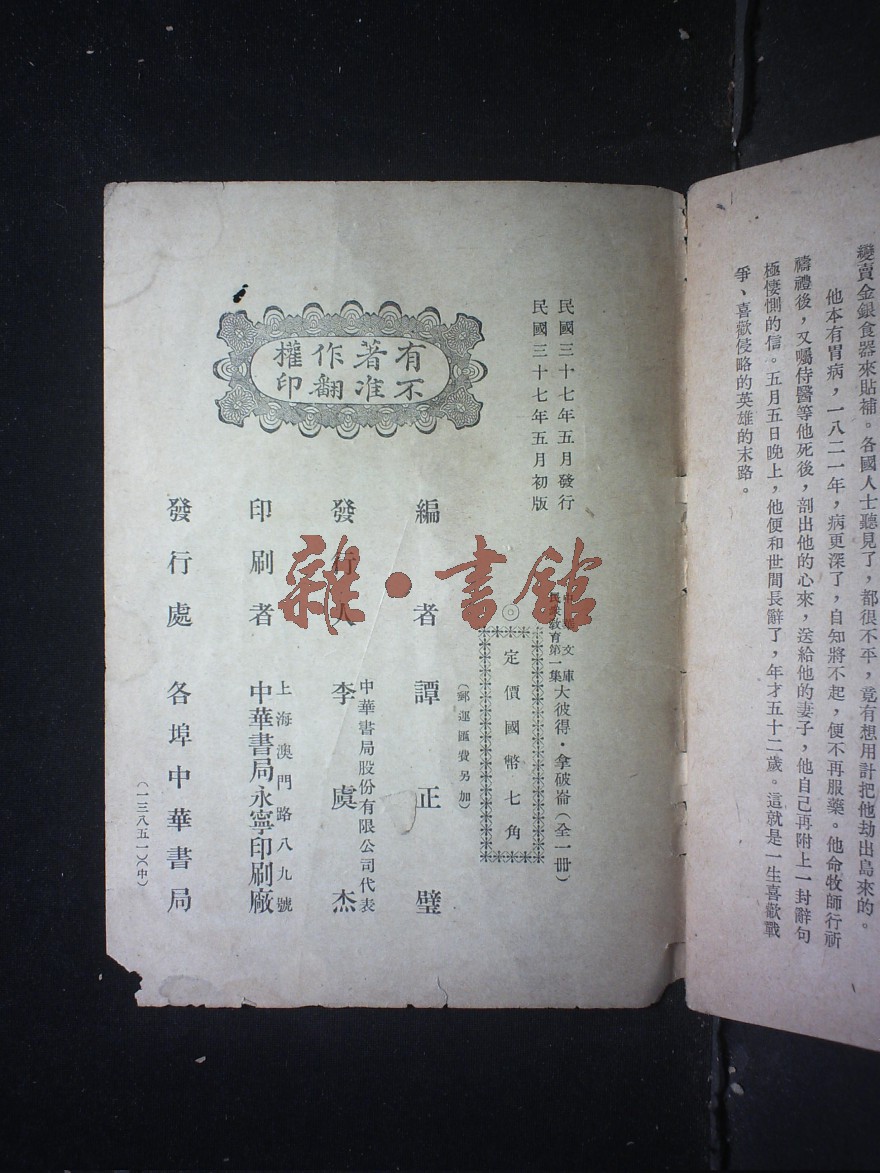 變賣金銀食器來貼補。各國人士聽見了，都很不平，竟有想用計把他劫出島來的。
他本有胃病，一八二一年，病更深了，自知將不起，便不再服藥。他命牧師行祈
禱禮後，又囑侍醫等他死後，剖出他的心來，送給他的妻子，他自己再附上一封辭句
極悽惻的信。五月五日晚上，他便和世間長辭了，年才五十二歲。這就是一生喜歡戰
爭、喜歡侵略的英雄的末路。
民國三十七年五月發行
民國三十七年五月初版
中華文庫
民眾教育第一集
大彼得・拿破崙（全一冊）
◎
定價國幣七角
（郵運匯費另加）
編者 譚正璧
中華書局股份有限公司代表
發行人 李虞杰
上海澳門路八九號
印刷者 中華書局永寧印刷廠
發行處 各埠中華書局
（一三八五一）（中）
有著作權
不准翻印
雜・書館